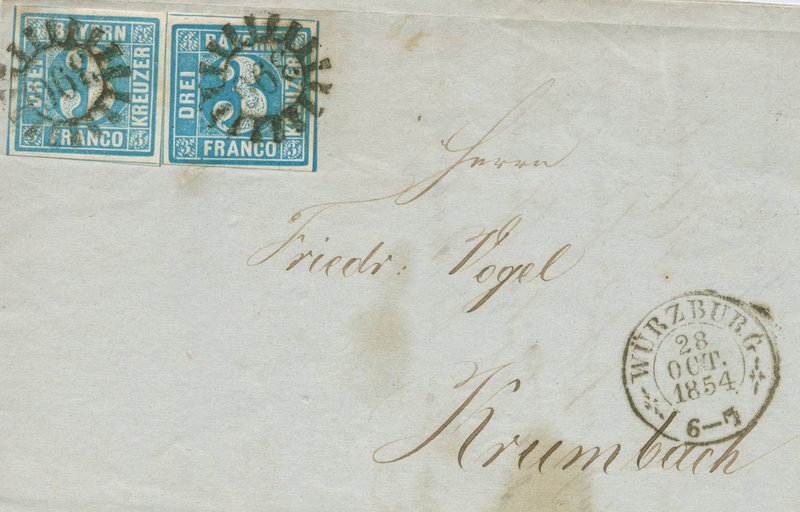 BAYERN
DREI
3
KREUZER
FRANCO
BAYERN
DREI
3
KREUZER
FRANCO
Herrn
Friedr: Vogel
Krumbach
WÜRZBURG
28
OCT.
1854
6–7